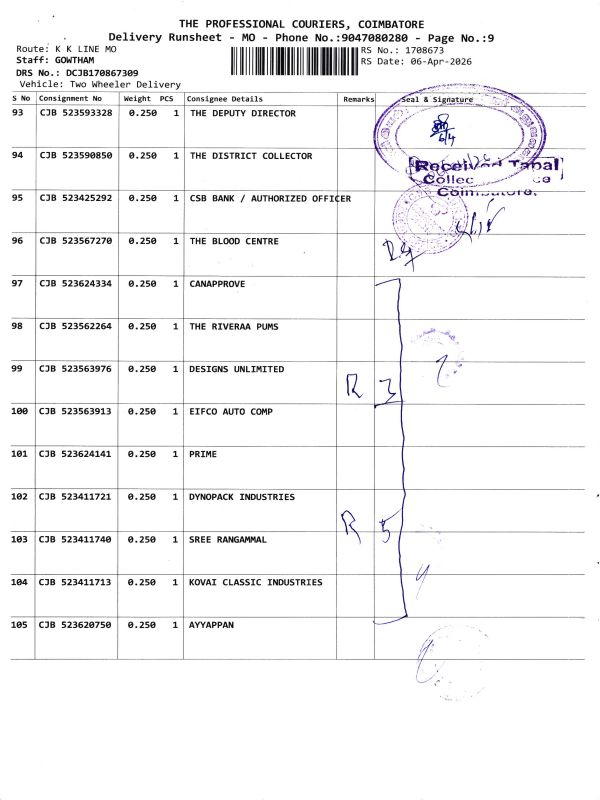 THE PROFESSIONAL COURIERS, COIMBATORE
Delivery Runsheet - MO - Phone No.:9047080280 - Page No.:9
Route: K K LINE MO
RS No.: 1708673
Staff: GOWTHAM
RS Date: 06-Apr-2026
DRS No.: DCJB170867309
Vehicle: Two Wheeler Delivery
S No Consignment No Weight PCS Consignee Details Remarks Seal & Signature
93 CJB 523593328 0.250 1 THE DEPUTY DIRECTOR
6/4
94 CJB 523590850 0.250 1 THE DISTRICT COLLECTOR
Received Tapal
Coimbatore.
95 CJB 523425292 0.250 1 CSB BANK / AUTHORIZED OFFICER
96 CJB 523567270 0.250 1 THE BLOOD CENTRE
97 CJB 523624334 0.250 1 CANAPPROVE
98 CJB 523562264 0.250 1 THE RIVERAA PUMS
99 CJB 523563976 0.250 1 DESIGNS UNLIMITED
R 3
100 CJB 523563913 0.250 1 EIFCO AUTO COMP
101 CJB 523624141 0.250 1 PRIME
102 CJB 523411721 0.250 1 DYNOPACK INDUSTRIES
R 5
103 CJB 523411740 0.250 1 SREE RANGAMMAL
104 CJB 523411713 0.250 1 KOVAI CLASSIC INDUSTRIES
105 CJB 523620750 0.250 1 AYYAPPAN